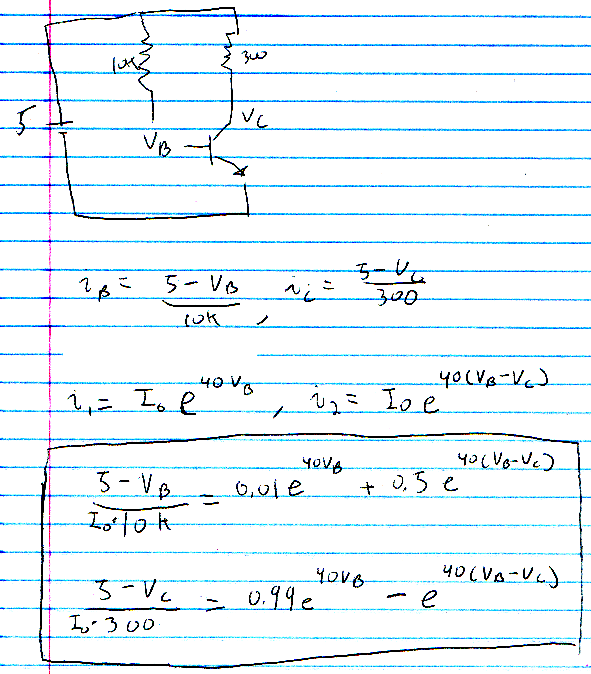 10K 300
5 V_B V_C
i_B = (5 - V_B)/10K , i_C = (5 - V_C)/300
i_1 = I_0 e^{40V_B} , i_2 = I_0 e^{40(V_B-V_C)}
(5 - V_B)/(I_0·10k) = 0.01e^{40V_B} + 0.5 e^{40(V_B-V_C)}
(5 - V_C)/(I_0·300) = 0.99e^{40V_B} - e^{40(V_B-V_C)}